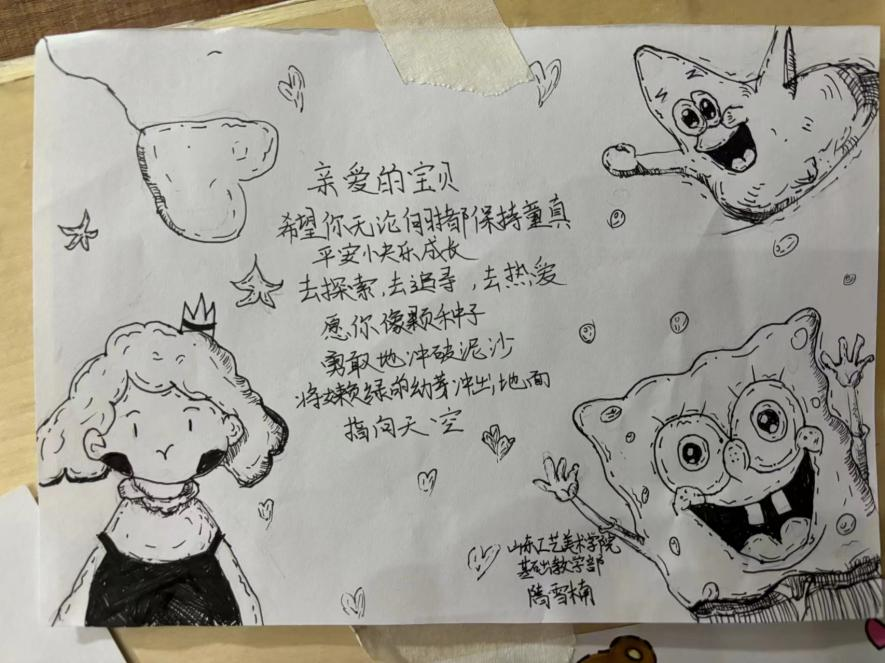 亲爱的宝贝
希望你无论何时都保持童真
平安小快乐成长
去探索,去追寻,去热爱
愿你像颗种子
勇敢地冲破泥沙
将嫩绿的幼芽冲出地面
指向天空
山东工艺美术学院
基础教学部
陶雪楠